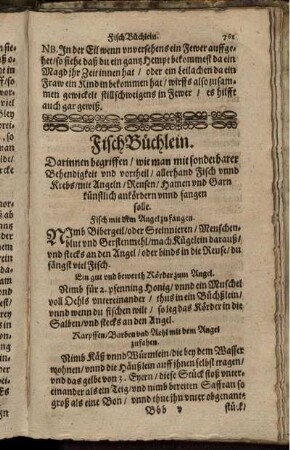 Fisch Büchlein.
NB. In der Eil wenn vnversehens ein Fewer auffge-
het / so siehe daß du ein gantz Hempt bekommest da ein
Magd jhr Zeit innen hat / oder ein Leilachen da ein
Fraw ein Kind in bekommen hat / wirffs also zusam-
men gewickelt stillschweigens in Fewer / es hilfft
auch gar gewiß.
Fisch Büchlein.
Darinnen begriffen / wie man mit sonderbarer
Behendigkeit vnd vortheil / allerhand Fisch vnnd
Krebs / mit Angeln / Reusen / Hamen vnd Garn
künstlich anködern vnnd fangen
solle.
Fisch mit dem Angel zu fangen.
NImb Bibergeil / oder Steinnieren / Menschen-
blut vnd Gerstenmehl / mach Kügelein darauß /
vnd stecks an den Angel / oder binds in die Reuse / du
fängst viel Fisch.
Ein gut vnd bewerth Körder zum Angel.
Nimb für 2. pfenning Honig / vnnd ein Muschel
voll Oehls vntereinander / thus in ein Büchßlein /
vnnd wenn du fischen wilt / so leg das Körder in die
Salben / vnd stecks an den Angel.
Karpffen / Barben vnd Aehl mit dem Angel
zufahen.
Nimb Käß vnnd Würmlein / die bey dem Wasser
wohnen / vnnd die Häußlein auff jhnen selbst tragen /
vnd das gelbe von 3. Eyern / diese Stück stoß vnter-
einander als ein Teig / vnd nimb bereiten Saffran so
groß als eine Bon / vnnd thue jhn vnter obgenante
Bbb v stück /